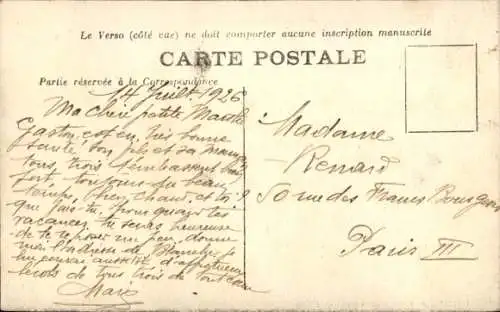 Le Verso (côté vue) ne doit comporter aucune inscription manuscrite
CARTE POSTALE
Partie réservée à la Correspondance
14 Juillet 1926
Ma chère petite Marthe
Gaston est en très bonne
santé son fils et sa
tous trois t'embrassent
fort toujours du beau
temps, bien chaud, et toi?
que fais-tu, pourquoi tes
vacances, tu serais heureuse
de te reposer un peu, donne
moi l'adresse de Blanche, je
lui
de tous trois de tout cœur
Madame
Renard
50 rue des Francs Bourgeois
Paris III